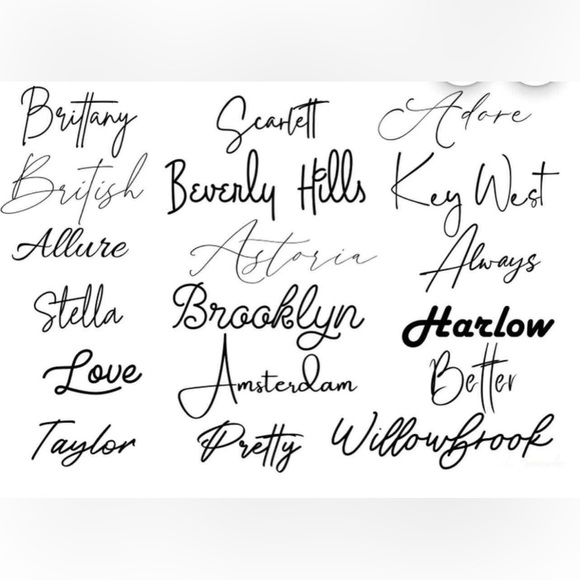 Brittany Scarlett Adore
British Beverly Hills Key West
Allure Astoria Always
Stella Brooklyn Harlow
Love Amsterdam Better
Taylor Pretty Willowbrook